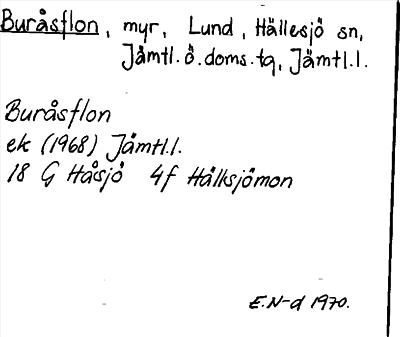 Buråsflon, myr, Lund, Hällesjö sn,
Jämtl.ö.doms.tg, Jämtl.l.
Buråsflon
ek (1968) Jämtl.l.
18 G Håsjö 4f Hällsjömon
E.N-d 1970.